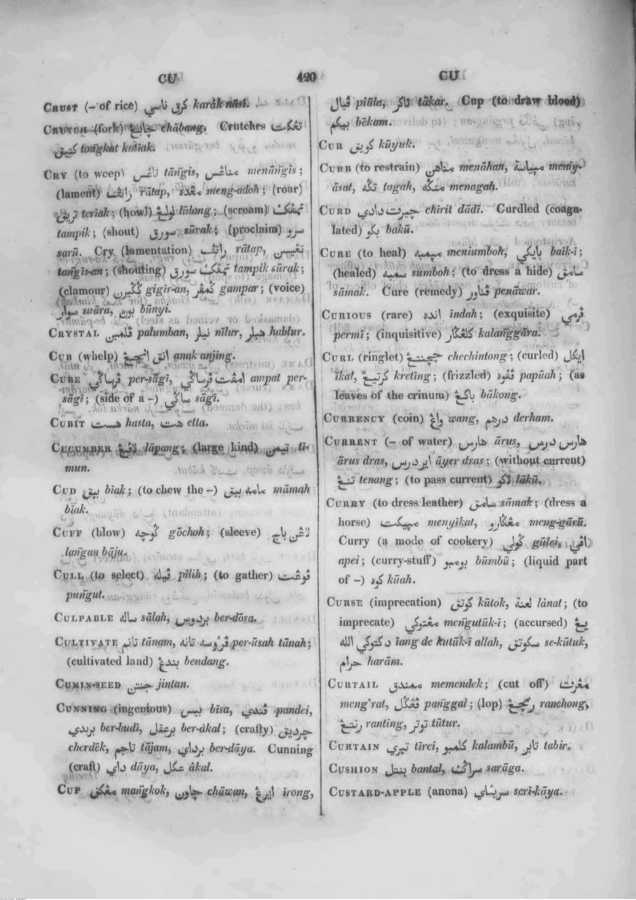 CU 420 CU
CRUST (– of rice) كرق ناسي karak nāsi.
CRUTCH (fork) چابڠ chābang. Crutches تڠكت
كتيق tongkat ketiak.
CRY (to weep) تاڠس tāngis, مناڠس menāngis;
(lament) راتڤ rātap, مڠدد meng-adoh; (roar)
تريق teriak; (howl) لولڠ lōlong; (scream)
tampik; (shout) سورق sūrak; (proclaim) سرو
sarū. Cry (lamentation) راتڤ rātap, تڠيسن
tangis-an; (shouting) تمڤڪ سورق tampik sūrak;
(clamour) gigir-an, gampar; (voice)
سوار suāra, بوڽي būnyi.
CRYSTAL ڤلمبن palumban, نيلر nīlur, هبلر hablur.
CUB (whelp) انق انجڠ anak anjing.
CUBE ڤرساݢي per-sāgi, امڤت ڤرساݢي ampat per-
sāgi; (side of a –) ساݢي sāgi.
CUBIT هست hasta, هت etta.
CUCUMBER لاڤڠ lāpang; (large kind) تيمن ti-
mun.
CUD بيق bīak; (to chew the –) مامه بيق māmah
bīak.
CUFF (blow) ݢوچه gōchoh; (sleeve) لاڠن باج
langan bāju.
CULL (to select) ڤيله pīlih; (to gather) ڤوڠت
pungut.
CULPABLE ساله sālah, بردوس ber-dōsa.
CULTIVATE تانم tānam, ڤروسه تانه per-ūsah tānah;
(cultivated land) بندڠ bendang.
CUMIN-SEED جنتن jintan.
CUNNING (ingenious) بيس bīsa, ڤندي pandei,
بربدي ber-budi, برعقل ber-ākal; (crafty) چرديق
cherdēk, تاجم tājam, برداي ber-dāya. Cunning
(craft) داي dāya, عقل ākal.
CUP مڠكق mangkok, چاون chāwan, ايرڠ irong,
ڤيال piāla, تاكر tākar. Cup (to draw blood)
بيكم bēkam.
CUR كويق kūyuk.
CURB (to restrain) مناهن menāhan, meniy-
āsat, تݢه tagah, منݢه menagah.
CURD چيرت دادي chirit dādi. Curdled (coagu-
lated) بكو bakū.
CURE (to heal) meniumboh, بايكي baik-i;
(healed) سمبه sumboh; (to dress a hide) سامق
sāmak. Cure (remedy) ڤناور penāwar.
CURIOUS (rare) انده indah; (exquisite) ڤرمي
permi; (inquisitive) kalanggāra.
CURL (ringlet) chechintong; (curled) ايكل
īkal, كرتيڠ kreting; (frizzled) ڤڤوه papūah; (as
leaves of the crinum) باكڠ bākong.
CURRENCY (coin) واڠ wang, درهم derham.
CURRENT (– of water) هارس ārus, هارس درس
ārus dras, اير درس āyer dras; (without current)
تنڠ tenang; (to pass current) لاكو lākū.
CURRY (to dress leather) سامق sāmak; (dress a
horse) مڽيكت menyikat, meng-gārū.
Curry (a mode of cookery) ݢولي gūlei,
apei; (curry-stuff) بومبو būmbū; (liquid part
of –) كوه kūah.
CURSE (imprecation) كوتق kūtok, لعنة lānat; (to
imprecate) مڠوتوكي mengutūk-i; (accursed) يڠ
دكتوكي الله iang de kutūk-i allah, سكوتق se-kūtuk,
حرام harām.
CURTAIL ممندق memendek; (cut off) مڠرت
meng'rat, ڤڠݢل panggal; (lop) رنچڠ ranchong,
رنتڠ ranting, توتر tūtur.
CURTAIN تيري tīrei, كلمبو kalambū, تابر tabir.
CUSHION بنتل bantal, سراݢ sarāga.
CUSTARD-APPLE (anona) سريكاي seri-kāya.